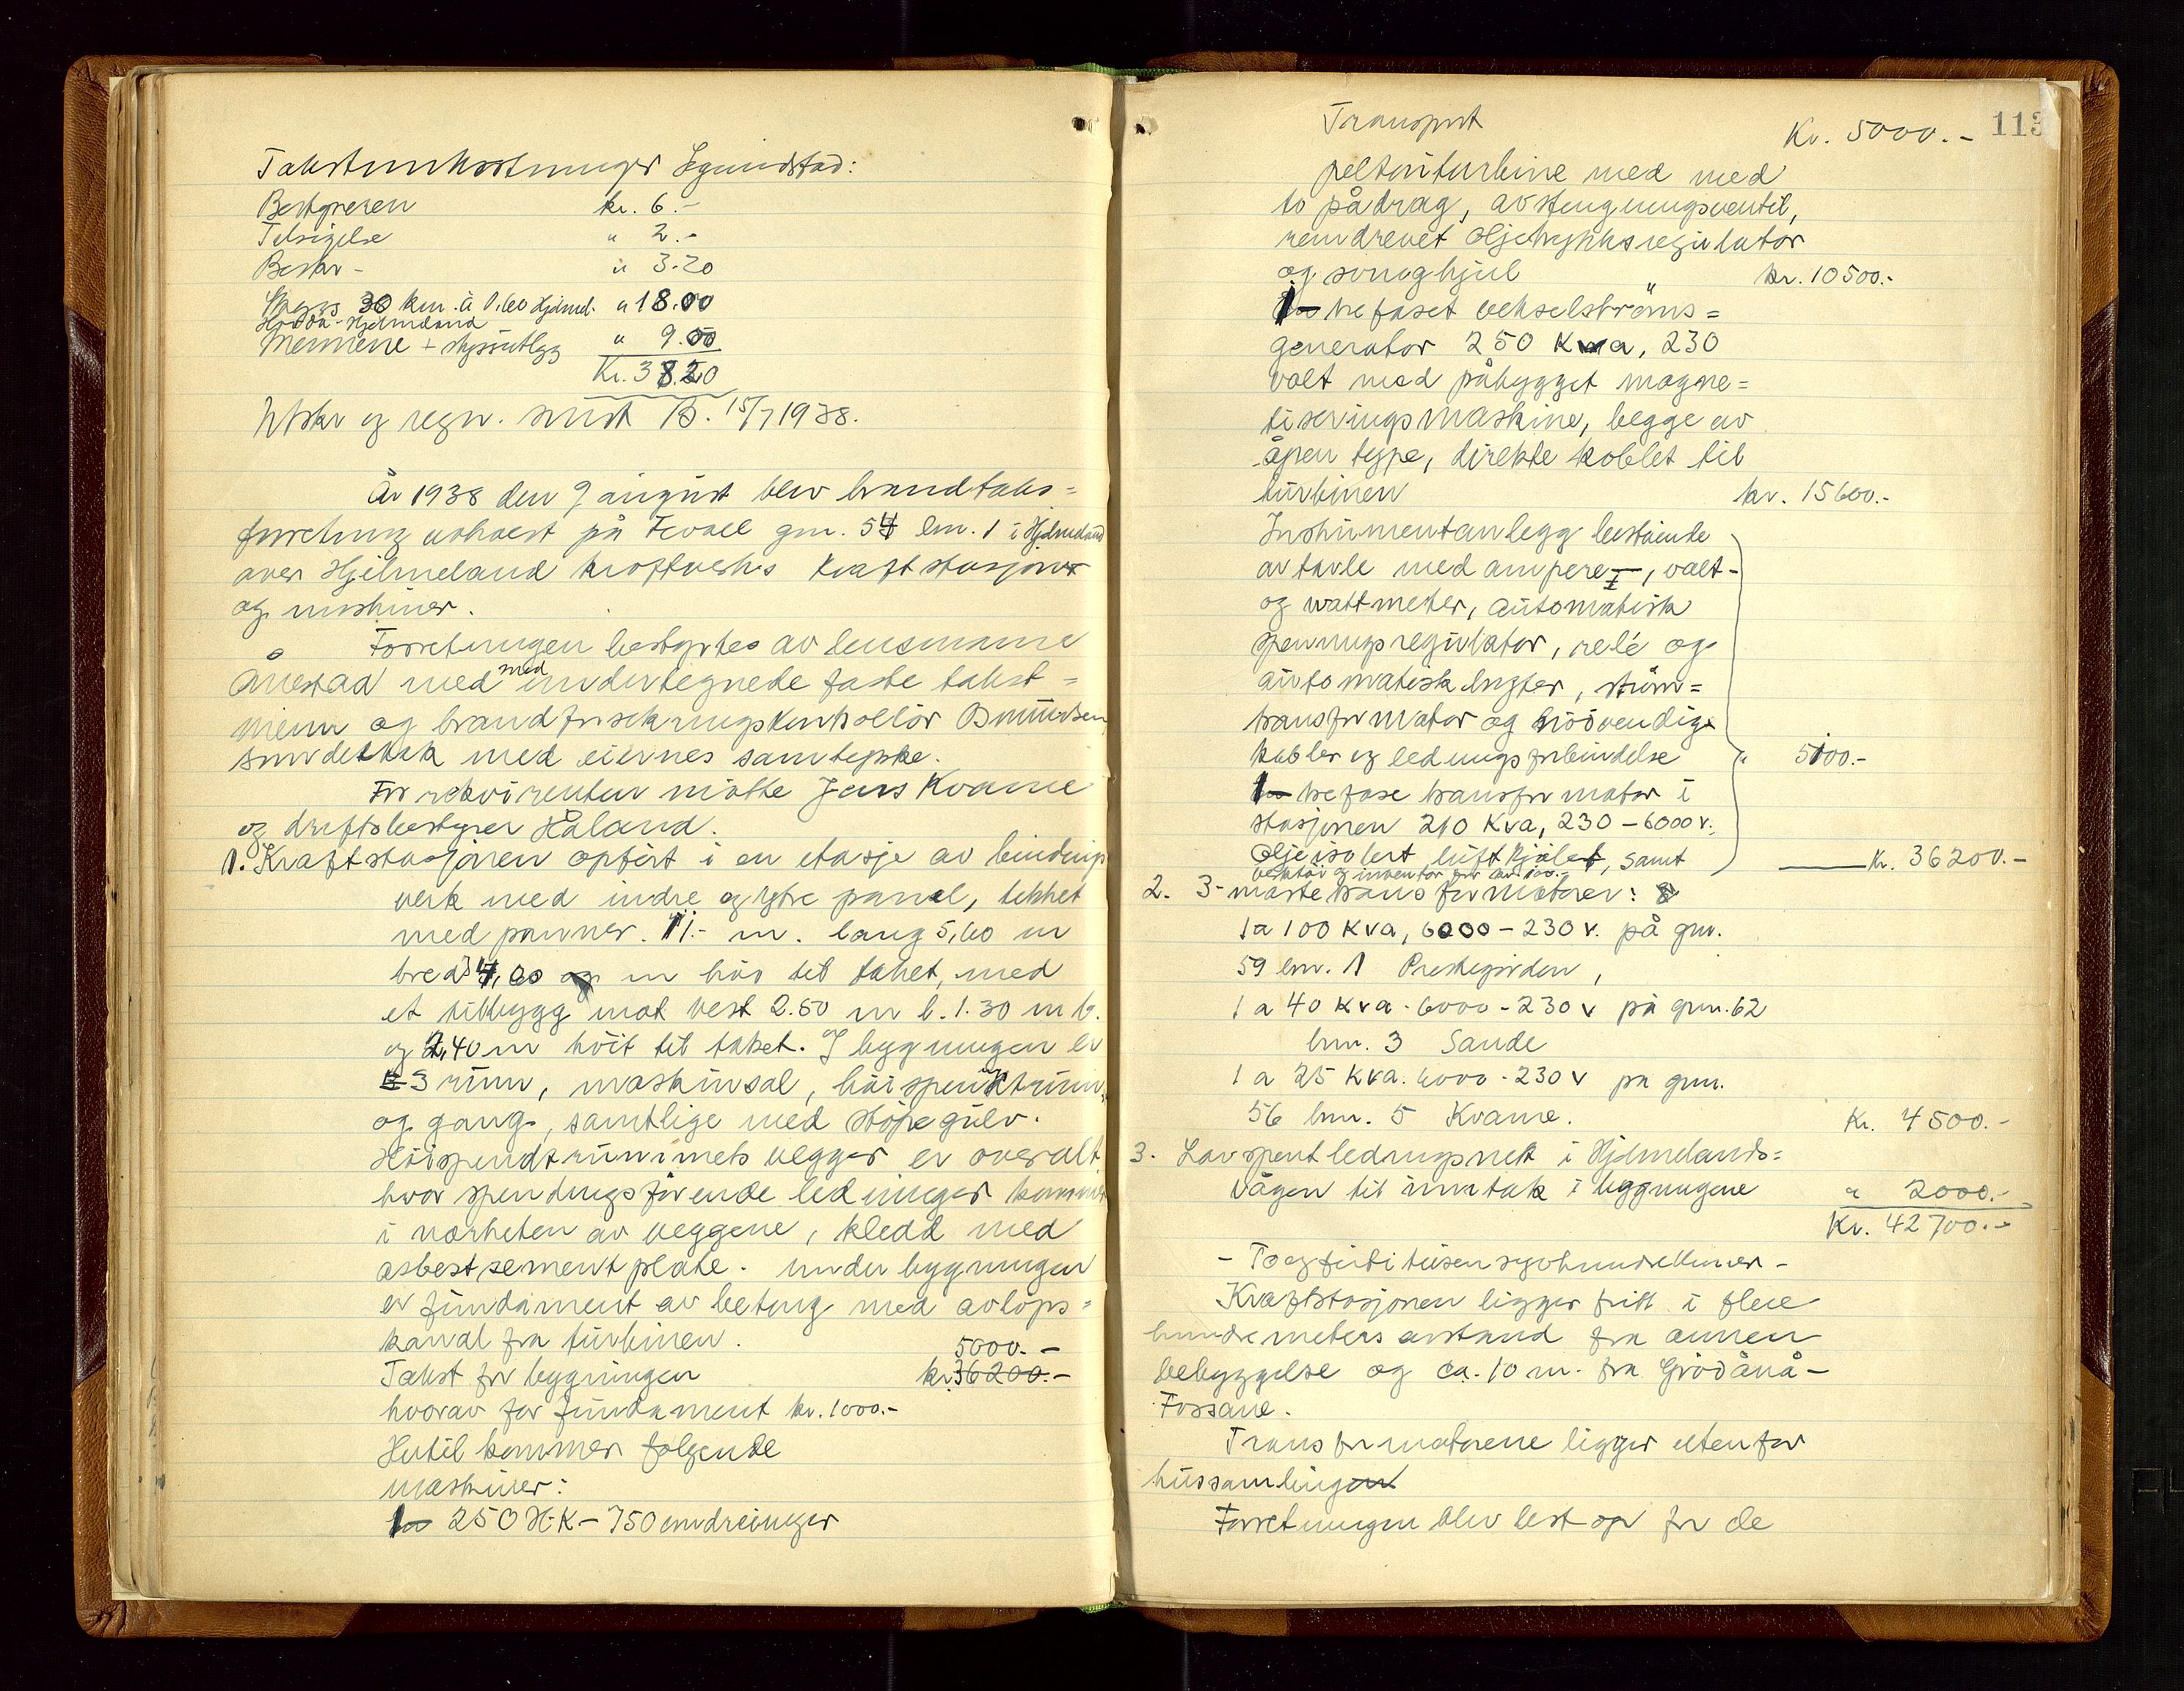 Takstumkostninger Segundstad:
Bestyreren kr. 6.-
Tilsigelse " 2.-
Beskr - " 3.20
Skyss 30 km. à 0.60 Hjelmel. " 18.00
Hjelmeland
Mennene + skyssutlegg " 9.00
Kr. 38.20
Utskr og regn. sendt B. 15/7 1938.
År 1938 den 9 august blev brandtaks=
forretning avholdt på Tevoll gnr. 54 bnr. 1 i Hjelmeland
over Hjelmeland kraftverks kraftstasjoner
og maskiner.
Forretningen bestyrtes av lensmann
Ånestad med med undertegnede faste takst=
menn og brandforsikringskontrollör Osmundsen
som deltok med eiernes samtykke.
For rekvirenten mötte Jens Kvame
og driftsbestyrer Håland.
1. Kraftstasjonen opfört i en etasje av bindings
verk med indre og ytre panel, tekket
med panner. 11.- m. lang 5,60 m
bred 4,00 m höi til taket, med
et tilbygg mot vest 2.50 m l. 1.30 m b.
og 2,40 m höit til taket. I bygningen er
3 rum, maskinsal, höispendtrum,
og gang, samtlige med stöpegulv.
Höispendtrummets vegger er overalt
hvor spendingsförende ledninger kommer
i nærheten av veggene, kledd med
asbestsementplate. Under bygningen
er fundament av betong med avlöps=
kanal fra turbinen. 5000.-
Takst for bygningen kr. 36200.-
hvorav for fundament kr. 1000.-
Hertil kommer følgende
maskiner:
1 250 H.K - 750 omdreininger
Transport Kr. 5000.- 113
peltonturbine med med
to pådrag, avstengningsventil,
remdrevet oljetrykksregulator
og svinghjul kr. 10500.-
1 trefaset vekselströms=
generator 250 Kva, 230
volt med påbygget magne=
tiseringsmaskine, begge av
åpen type, direkte koblet til
turbinen kr. 15600.-
Instrumentanlegg bestående
av tavle med ampere-, volt-
og wattmeter, automatisk
spenningsregulator, relé og
automatisk bryter, ström=
transformator og nödvendige
kabler og ledningsforbindelse " 5100.-
1 trefase transformator i
stasjonen 210 Kva, 230 - 6000 v.
Oljeisolert luftkjölet, samt Kr. 36200.-
verktöi og inventar for kr. 100.-
2. 3- mastetransformatorer:
1 a 100 Kva, 6000 - 230 v. på gnr.
59 bnr. 1 Prestegården,
1 a 40 Kva - 6000 - 230 v på gnr. 62
bnr. 3 Sande
1 a 25 Kva. 6000 - 230 v på gnr.
56 bnr. 5 Kvame. Kr. 4500.-
3. Lavspentledningsnett i Hjelmelands=
vågen til inntak i bygningene " 2000.-
Kr. 42700.-
- Toogförti tusen syvhundrekroner -
Kraftstasjonen ligger fritt i flere
hundre meters avstand fra annen
bebyggelse og ca. 10 m. fra Grödånå-
Fossane.
Transformatorene ligger utenfor
hussamling
Forretningen blev lest op for de